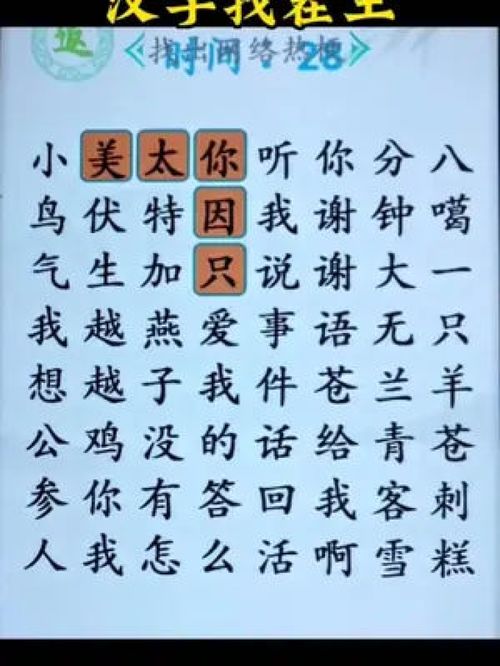 汉字找茬王
返
《找出网络热梗》
时间:28
小美太你听你分八
鸟伏特因我谢钟噶
气生加只说谢大一
我越燕爱事语无只
想越子我件苍兰羊
公鸡没的话给青苍
参你有答回我客刺
人我怎么活啊雪糕